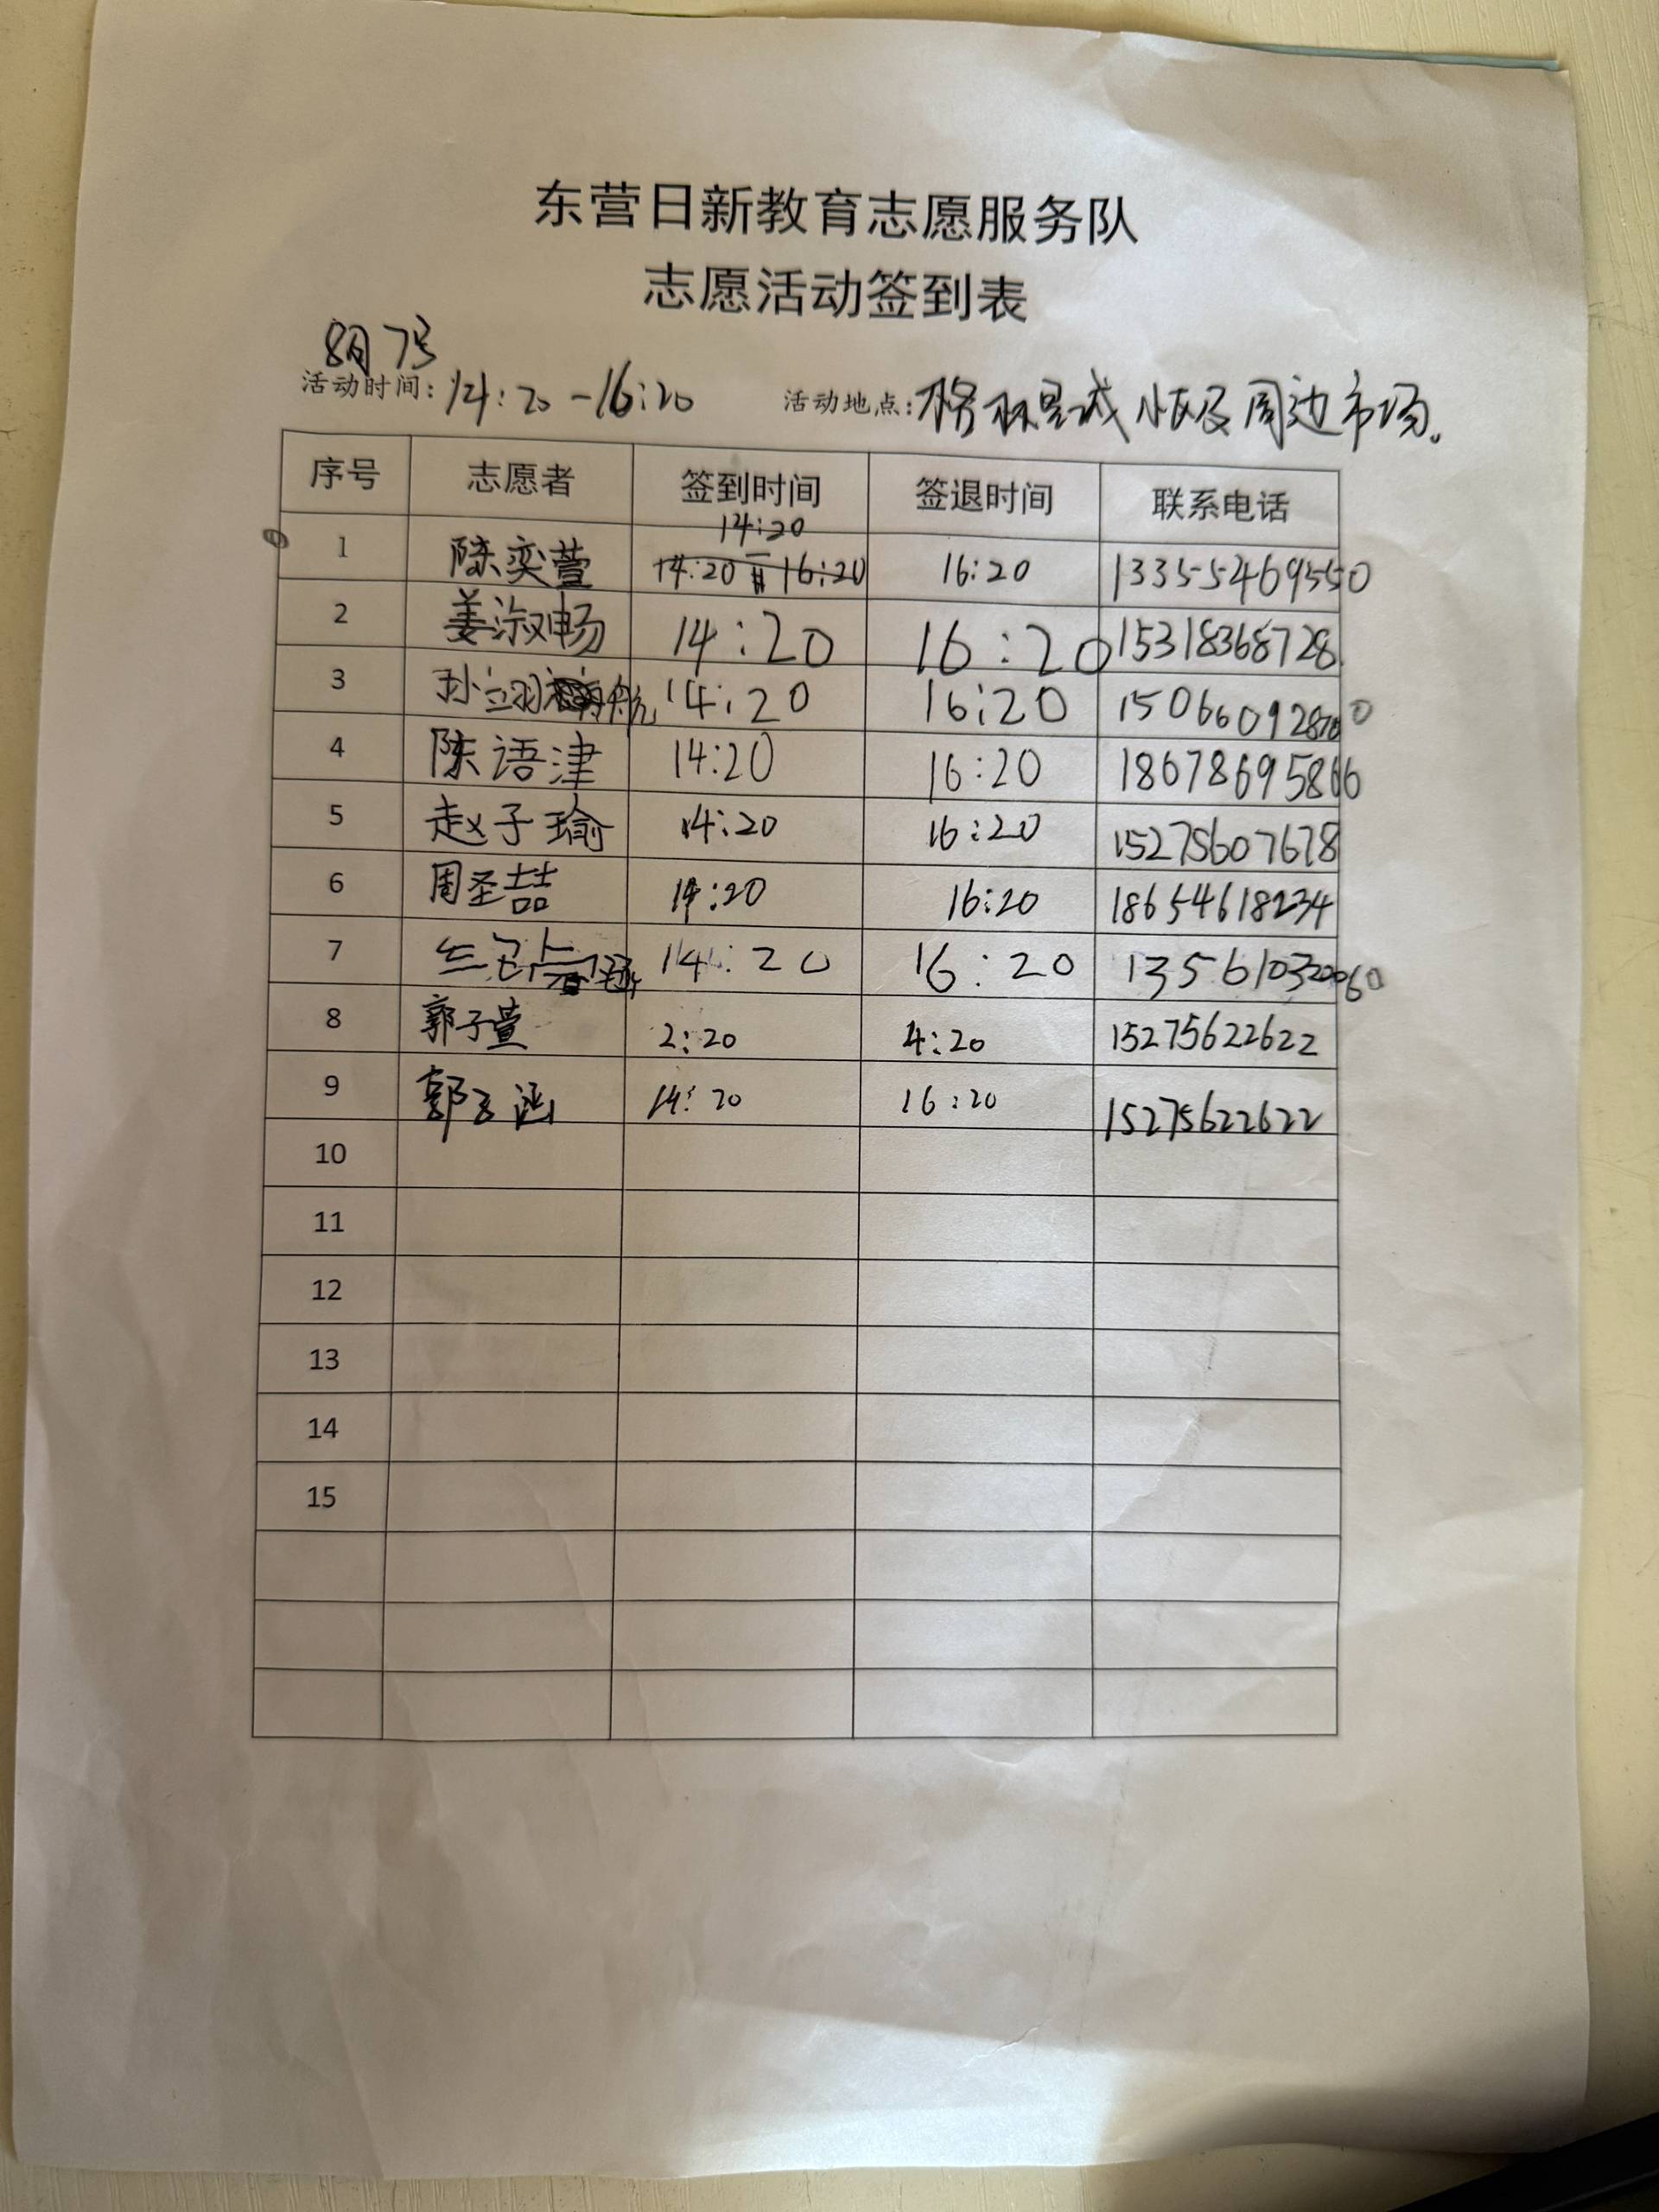 东营日新教育志愿服务队
志愿活动签到表
8月7号
活动时间：14:20-16:20 活动地点：格林星城小区及周边市场。
序号 志愿者 签到时间 签退时间 联系电话
14:20
1 陈奕萱 14:20 16:20 16:20 13355469550
2 姜淑畅 14:20 16:20 15318368728
3 孙翊航 14:20 16:20
4 陈语津 14:20 16:20 18678695866
5 赵子瑜 14:20 16:20 15275607678
6 周圣喆 14:20 16:20 18654618234
7 14:20 16:20
8 郭子萱 2:20 4:20 15275622622
9 郭子涵 14:20 16:20 15275622622
10
11
12
13
14
15